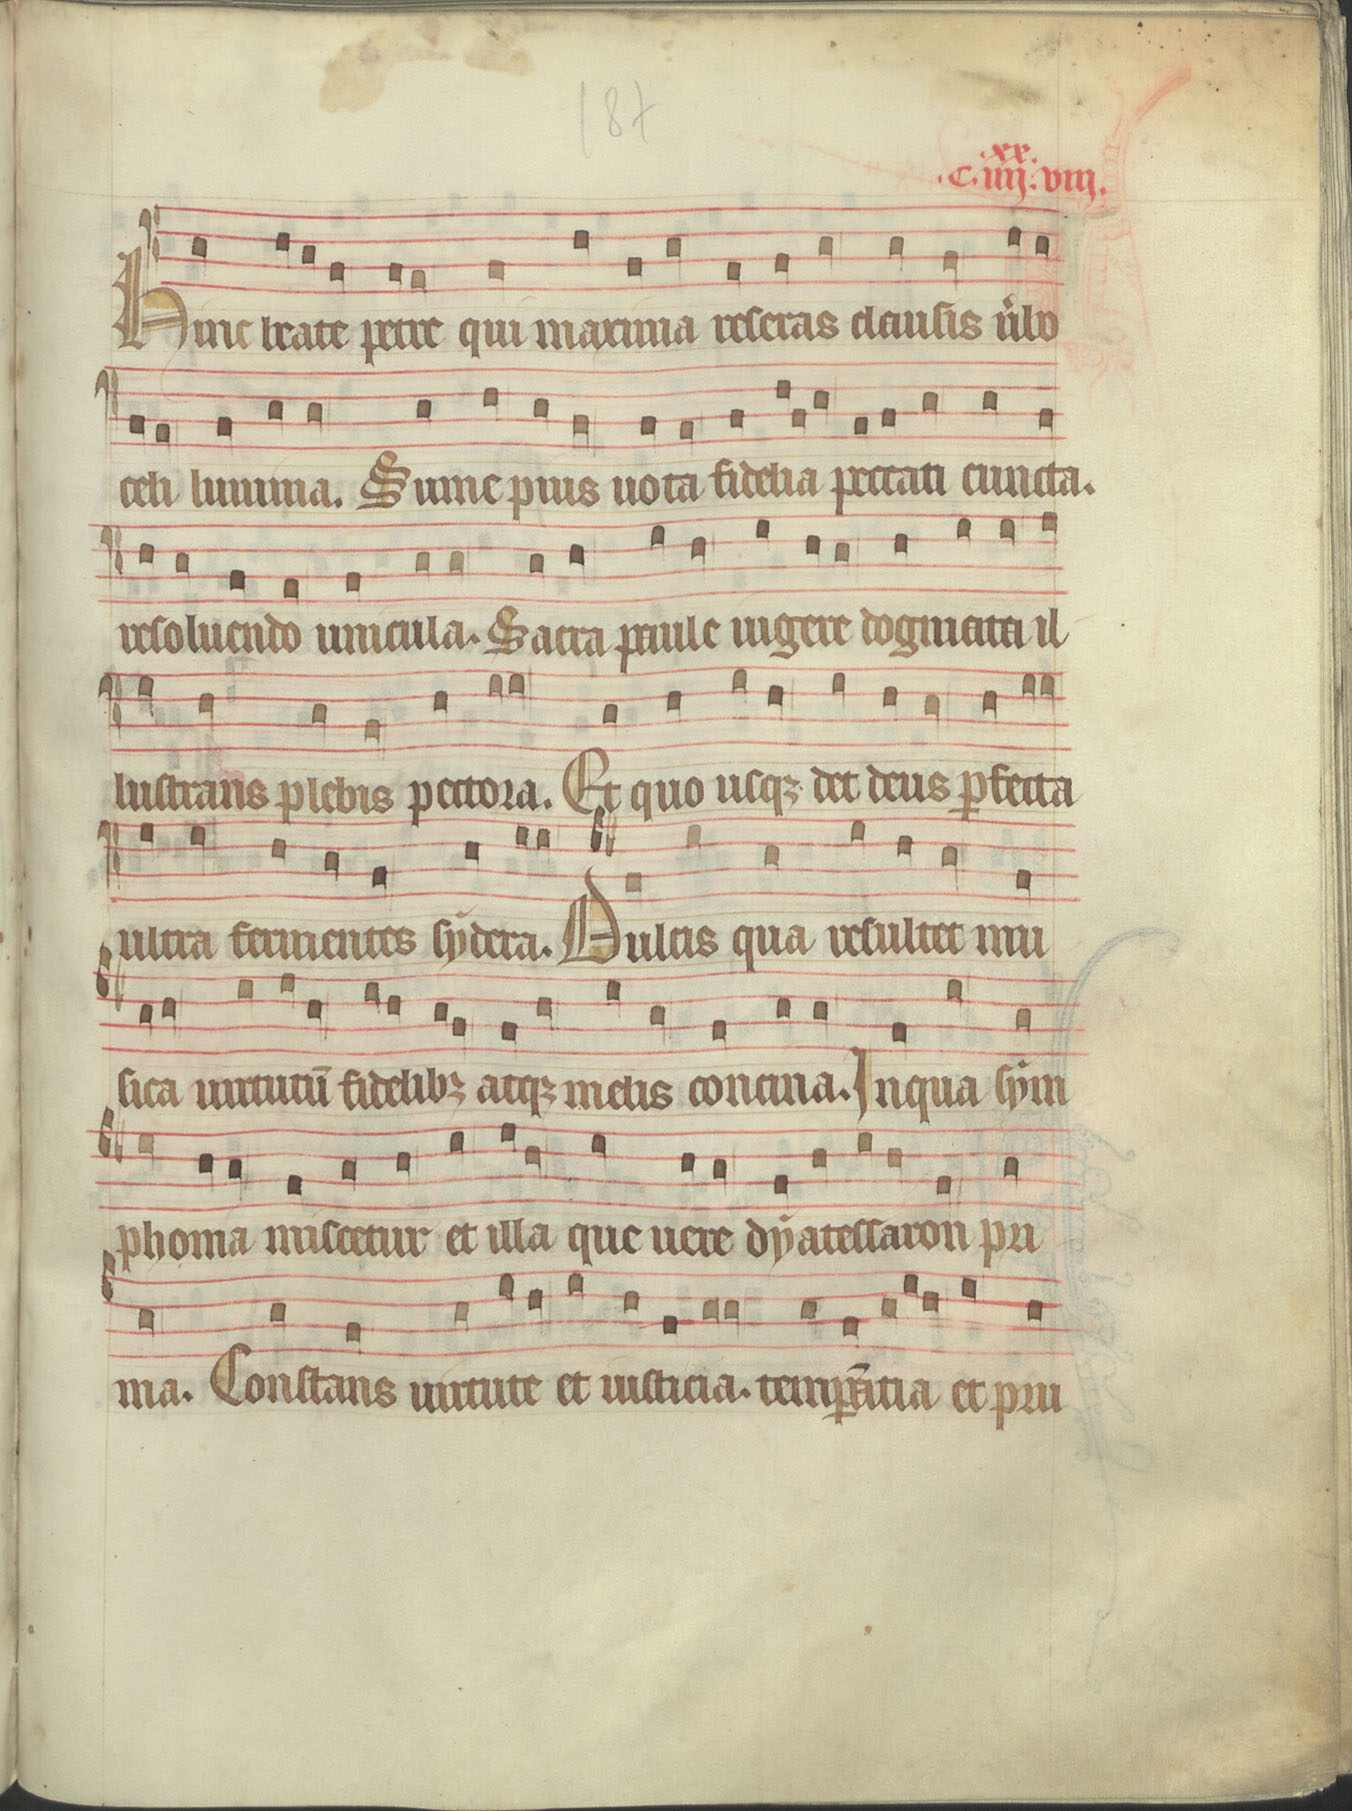 187
.xx.
.c.iiij.viij.
Hinc beate petre qui maxima reseras clausis ũbo
celi lumina. Sume pius uota fidelia peccati cuncta.
resoluendo uincula. Sacra paule ingere dogmata il
lustrans plebis pectora. Et quo usqꝫ det deus ꝑfecta
ultra feruientes sydera. Dulcis qua resultet mu
sica uirtutũ fidelibꝫ atqꝫ melis concina. Inqua sym
phonia miscetur et illa que uere dyatessaron pri
ma. Constans uirtute et iusticia. temꝑãtia et pru